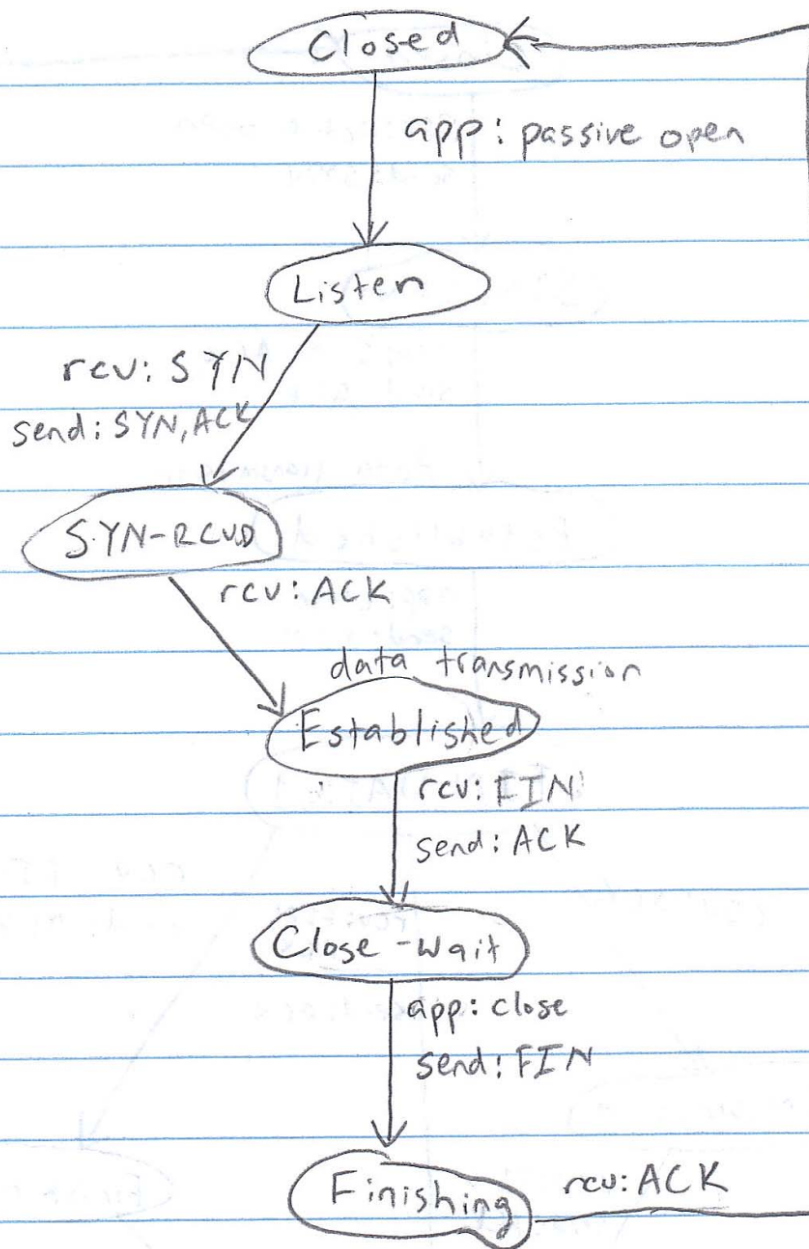 Closed
app: passive open
Listen
rcv: SYN
send: SYN, ACK
SYN-RCVD
rcv: ACK
data transmission
Established
rcv: FIN
send: ACK
Close-Wait
app: close
send: FIN
Finishing
rcv: ACK